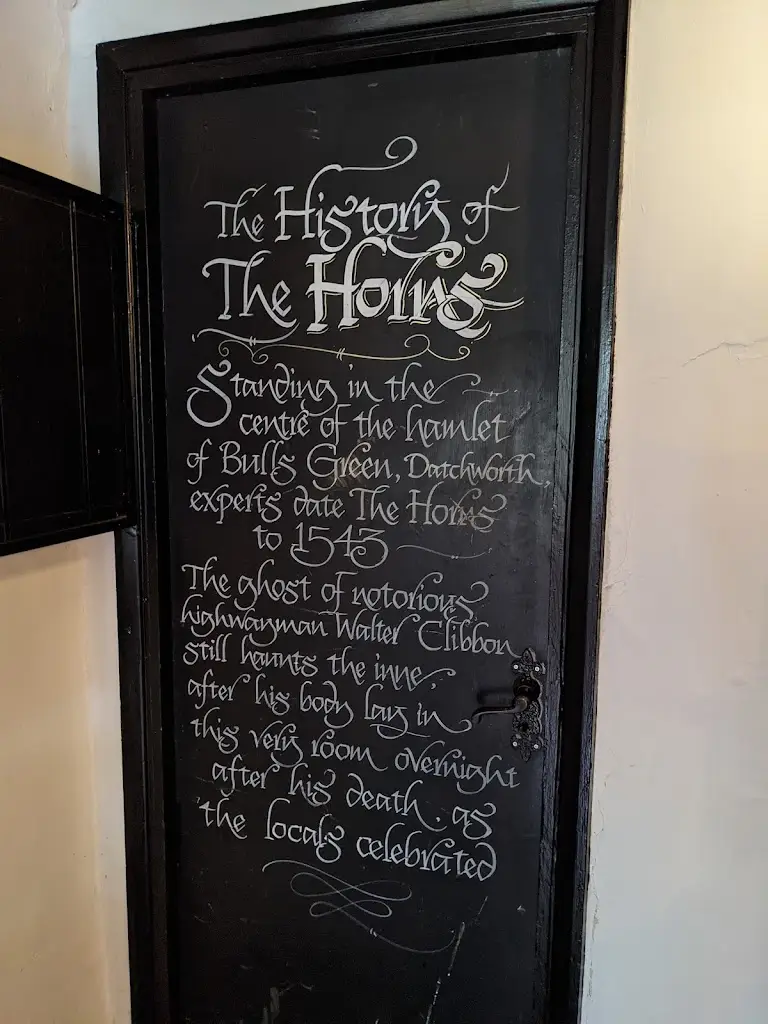 The History of
The Horns
Standing in the
centre of the hamlet
of Bull's Green, Datchworth,
experts date The Horns
to 1543
The ghost of notorious
highwayman Walter Clibbon
still haunts the inne,
after his body lay in
this very room overnight
after his death, as
the locals celebrated